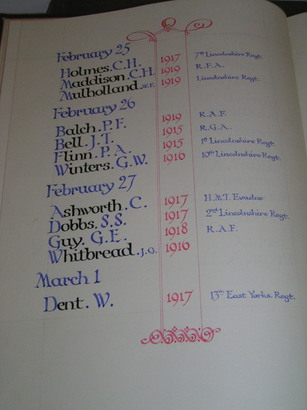 February 25
Holmes. C.H. 1917 7th Lincolnshire Regt.
Maddison. C.H. 1919 R.F.A.
Mulholland. W.F. 1919 Lincolnshire Regt.
February 26
Balch. P.F. 1919 R.A.F.
Bell. J.T. 1915 R.G.A.
Flinn. P.A. 1915 1st Lincolnshire Regt.
Winters. G.W. 1916 10th Lincolnshire Regt.
February 27
Ashworth. C. 1917 H.M.T. Evadne
Dobbs. S.S. 1917 2nd Lincolnshire Regt.
Guy. G.E. 1918 R.A.F.
Whitbread. J.G. 1916
March 1
Dent. W. 1917 13th East Yorks. Regt.